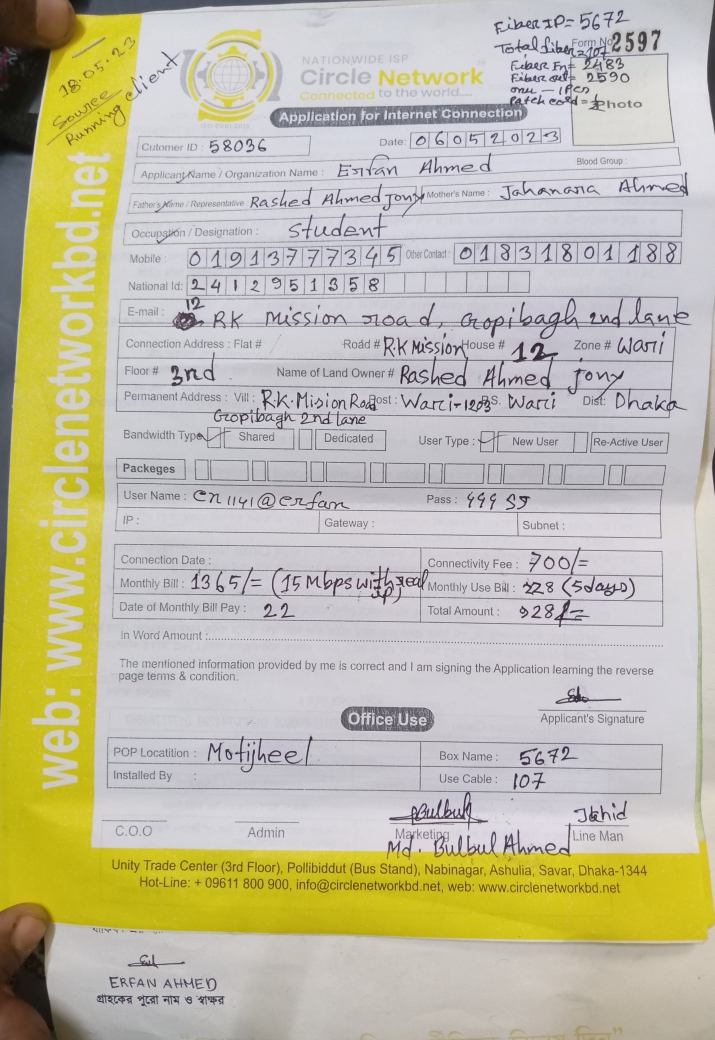 Fiber IP = 5672
Total fiber = 107
Form No 2597
Fiber En = 2483
Fiber end = 2590
onu - 1 Pcs
Patch cord = 1
Photo
18.05.23
Source
Running client
NATIONWIDE ISP
Circle Network
Connected to the world....
ISO 9001:2015
Application for Internet Connection
Cutomer ID : 58036
Date: 06052023
Applicant Name / Organization Name : Erfan Ahmed
Blood Group :
Father's Name / Representative : Rashed Ahmed Jony Mother's Name : Jahanara Ahmed
Occupation / Designation : Student
Mobile : 01913777345 Other Contact : 01831801188
National Id: 2412951358
E-mail : 12 RK Mission road, Gopibagh 2nd lane
Connection Address : Flat # Road # R.K Mission House # 12 Zone # Wari
Floor # 3rd Name of Land Owner # Rashed Ahmed Jony
Permanent Address : Vill : R.K. Mision Road Post : Wari-1203 P.S. Wari Dist: Dhaka
Gropibagh 2nd lane
Bandwidth Type Shared Dedicated User Type : New User Re-Active User
Packeges
User Name : cn1141@erfan Pass :
IP : Gateway : Subnet :
Connection Date : Connectivity Fee : 700/=
Monthly Bill : 1365/= (15 Mbps with real IP) Monthly Use Bill : 228 (5days)
Date of Monthly Bill Pay : 22 Total Amount : 928/=
In Word Amount :
The mentioned information provided by me is correct and I am signing the Application learning the reverse
page terms & condition.
Applicant's Signature
Office Use
POP Locatition : Motijheel Box Name : 5672
Installed By : Use Cable : 107
Bulbul Jahid
C.O.O Admin Marketing Line Man
Md. Bulbul Ahmed
Unity Trade Center (3rd Floor), Pollibiddut (Bus Stand), Nabinagar, Ashulia, Savar, Dhaka-1344
Hot-Line: + 09611 800 900, info@circlenetworkbd.net, web: www.circlenetworkbd.net
web: www.circlenetworkbd.net
ERFAN AHMED
গ্রাহকের পুরো নাম ও স্বাক্ষর